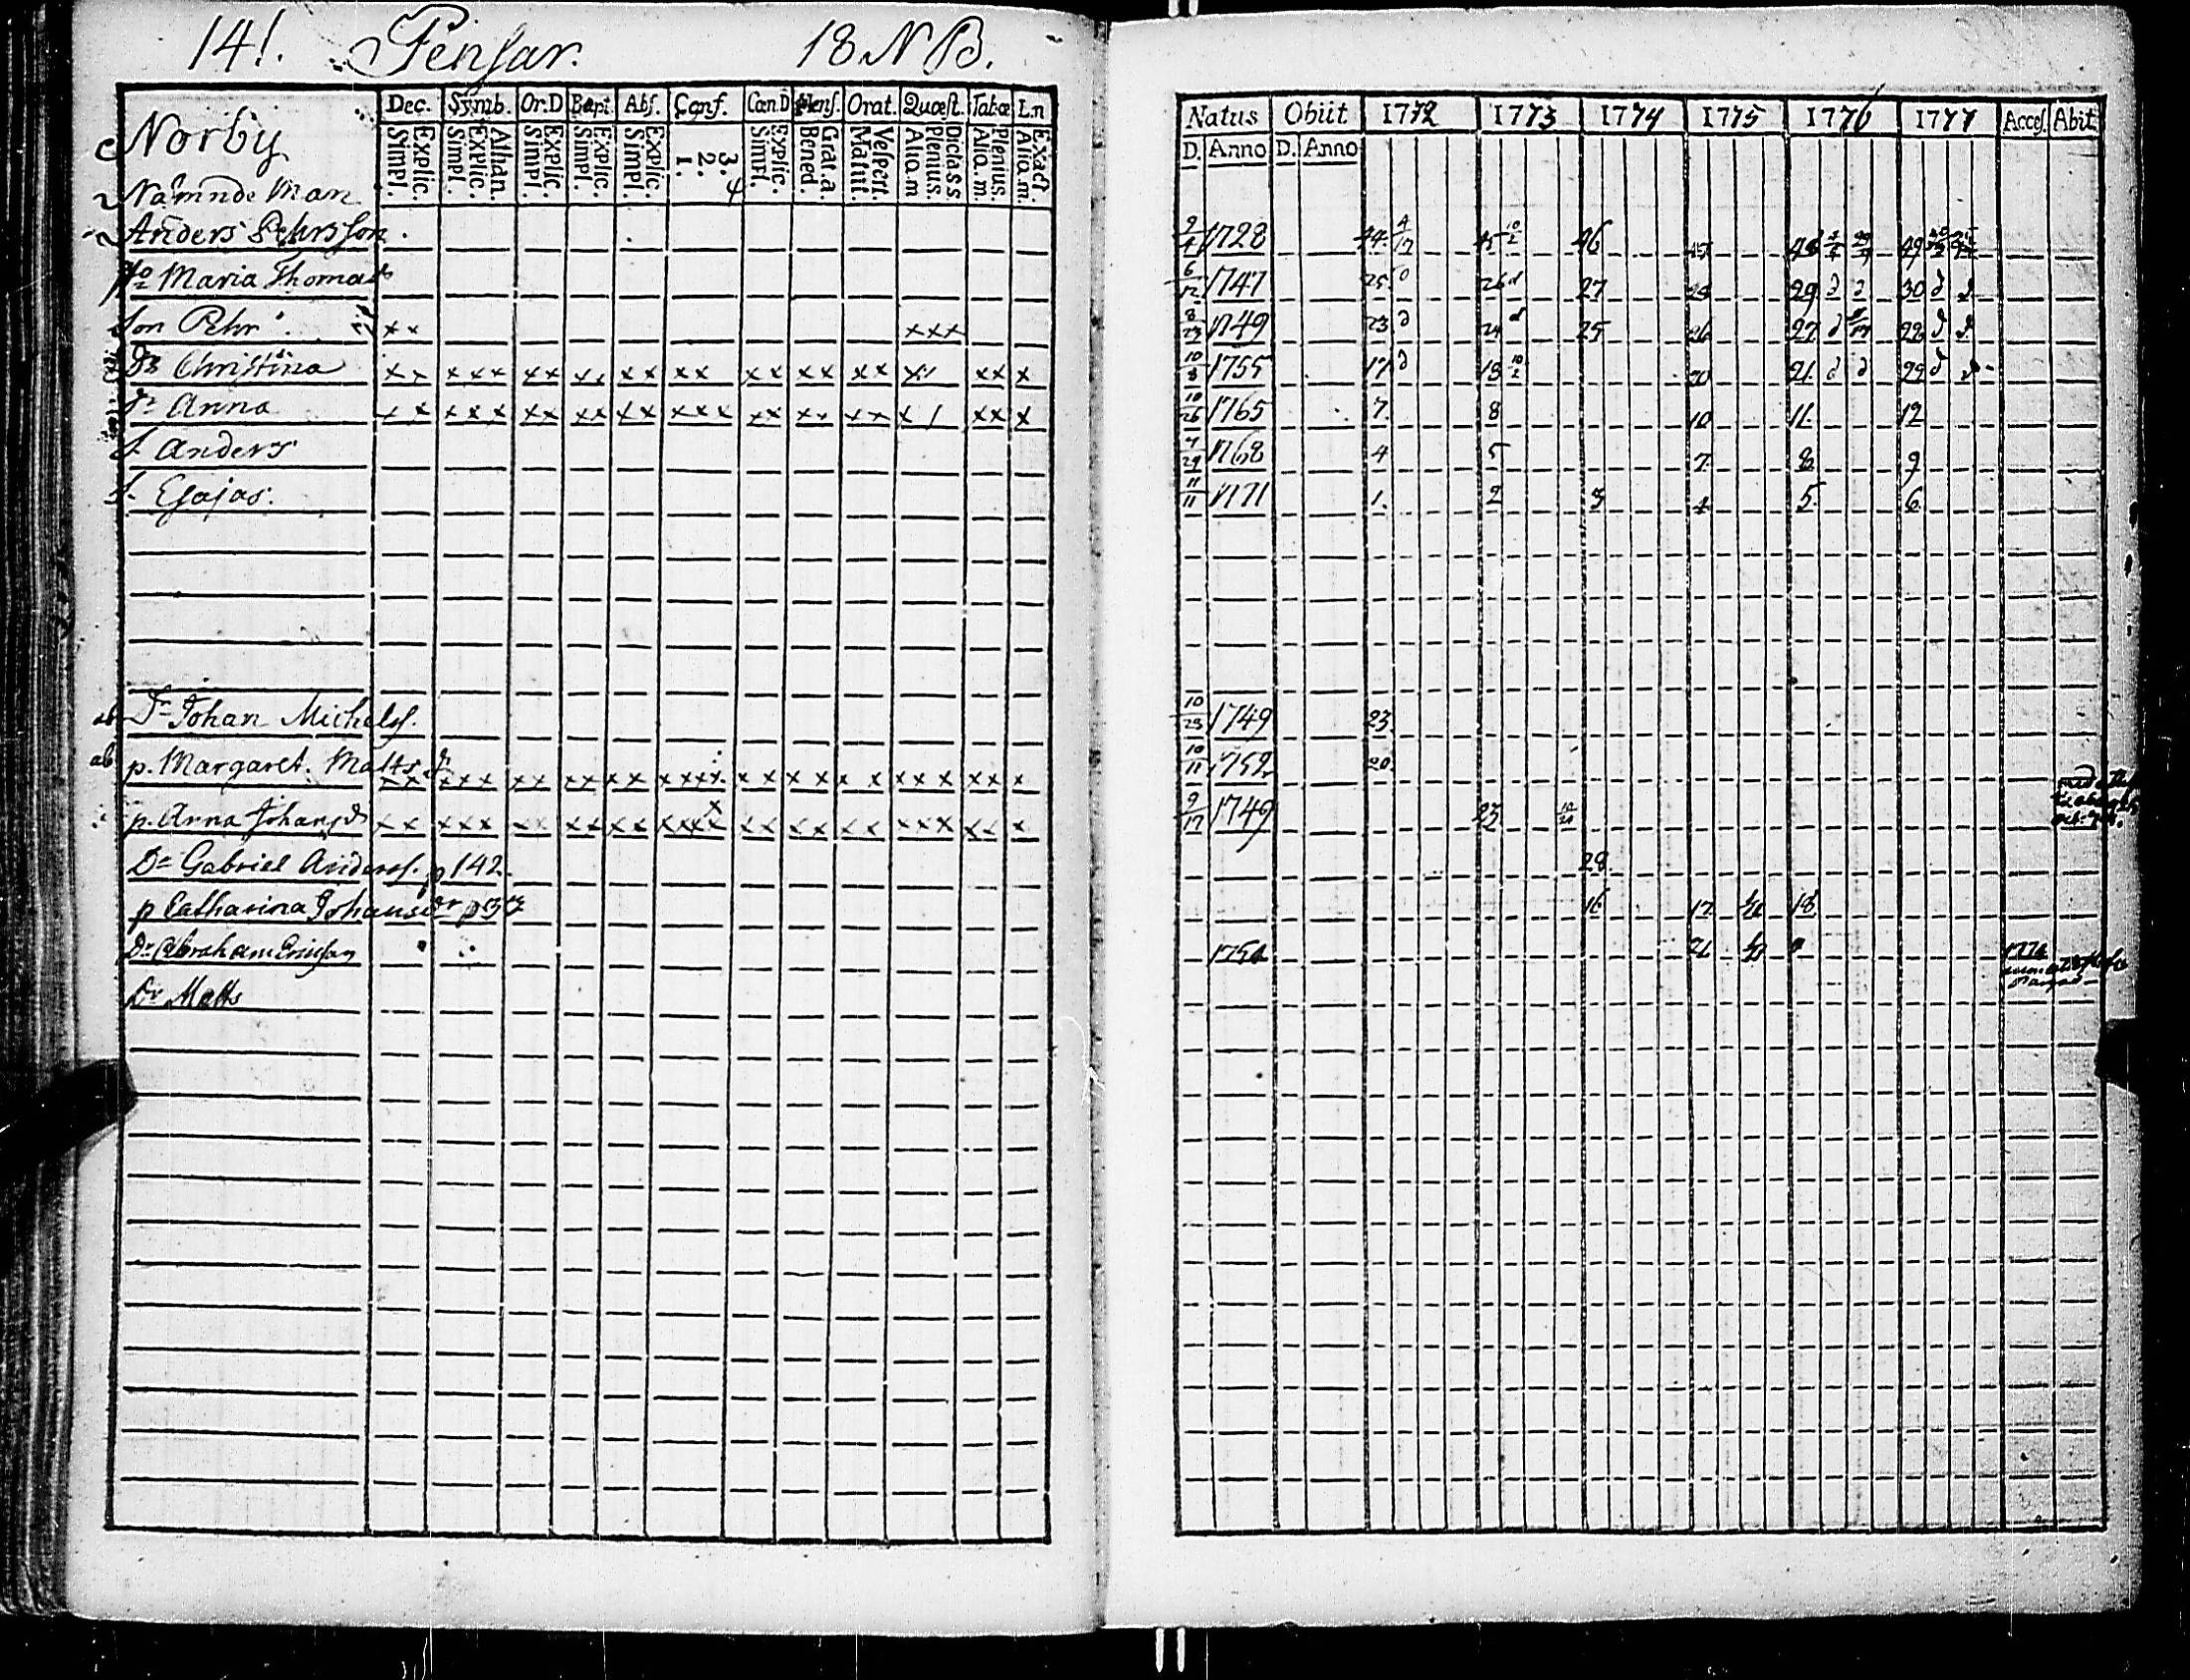 141. Pensar. 18 NB.
Norby
Nämnde Man
Anders Pehrsson
Ho Maria Thomasd
Son Pehr
Dr Christina
Dr Anna
S. Anders
S. Esajas.
ab Dr Johan Michelss.
ab p. Margaret. Matts dr
p. Anna Johansd
Dr Gabriel Anderss. p 142.
p Catharina Johansdr
Dr Abraham Ericsson
Dr Matts
Dec. Symb. Or.D Bapt. Abs. Conf. Cœn.D Mens. Orat. Quæst. Tab.œ L.n
Simpl. Explic. Simpl. Explic. Athan. Simpl. Explic. Simpl. Explic. Simpl. Explic. 1. 2. 3. 4 Simpl. Explic. Bened. Grat.a. Matut. Vespert. Aliq.m Plenius. Dicta s.s Aliq.m. Plenius. Aliq.m. Exact
x x x x x
x x x x x x x x x x x x x x x x x x x x x x x x
x x x x x x x x x x x x x x x x x x x x x x x x
x x x x x x x x x x x x x x x x x x x x x x x x x x x
x x x x x x x x x x x x x x x x x x x x x x x x x x x
Natus Obiit 1772 1773 1774 1775 1776 1777 Acces. Abit
D. Anno D. Anno
1728 44 46 49
6/12 1747 25 26 27 28 29 30
8/23 1749 23 24 25 26 27 28
10/8 1755 17 18 20 21 22
10/26 1765 7. 8 10 11. 12
1768 4 5 7. 8 9
11/11 1771 1. 2 3 4 5 6
10/23 1749 23
10/11 1752 20
9/17 1749 23
28
16 17 18
1754 21 1774